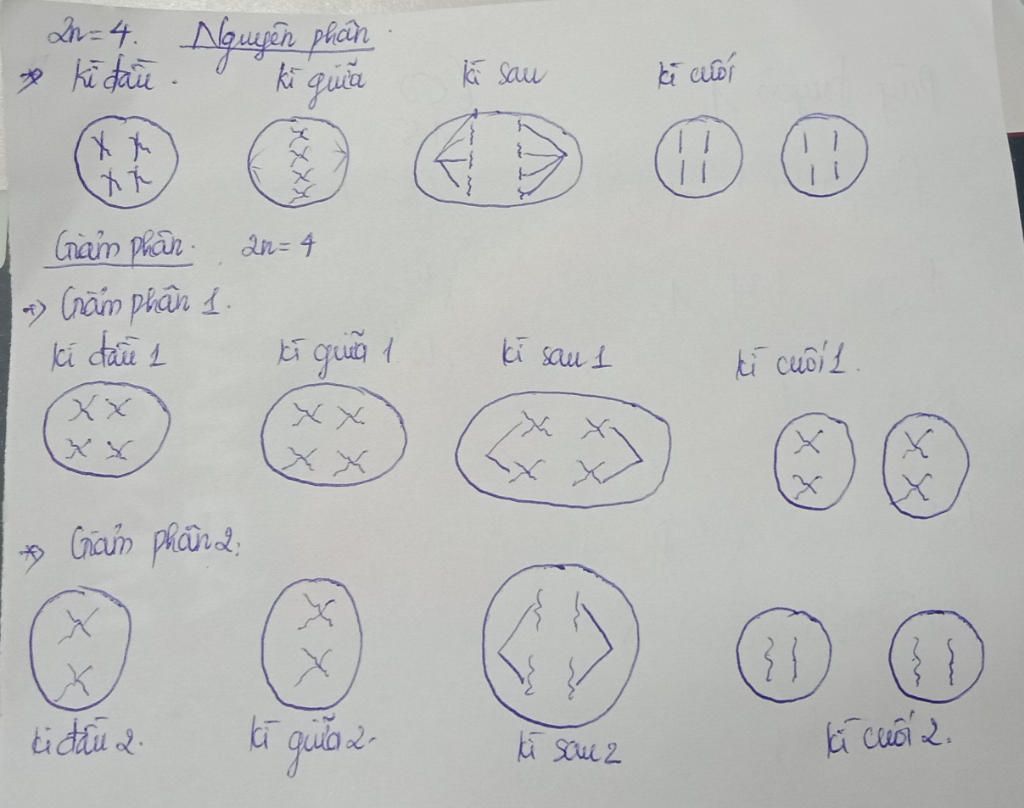 2n=4. Nguyên phân.
kì đầu. kì giữa kì sau kì cuối
Giảm phân. 2n=4
Giảm phân 1.
kì đầu 1 kì giữa 1 kì sau 1 kì cuối 1.
Giảm phân 2:
kì đầu 2. kì giữa 2. kì sau 2 kì cuối 2.